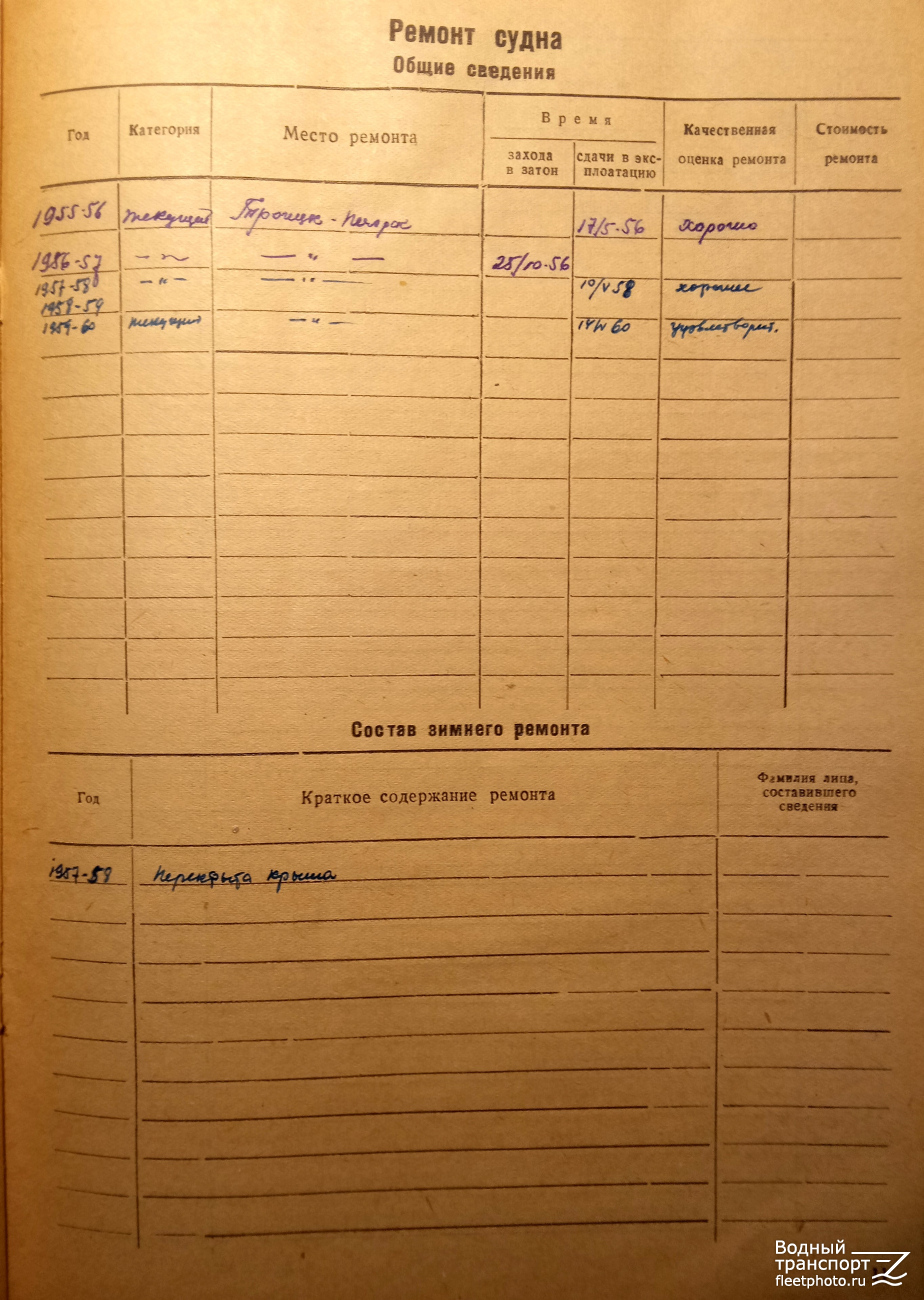 Ремонт судна
Общие сведения
Год Категория Место ремонта Время Качественная оценка ремонта Стоимость ремонта
захода в затон сдачи в экс-плоатацию
1955-56 текущий Троицк - 17/5-56 хорошо
1956-57 — " — — " — 25/10-56
1957-58 — " — — " — 10/V 58 хорошее
1958-59
1959-60 текущий — " — 60 удовлетворит.
Состав зимнего ремонта
Год Краткое содержание ремонта Фамилия лица, составившего сведения
1957-58 Перекрыта крыша
Водный
транспорт
fleetphoto.ru